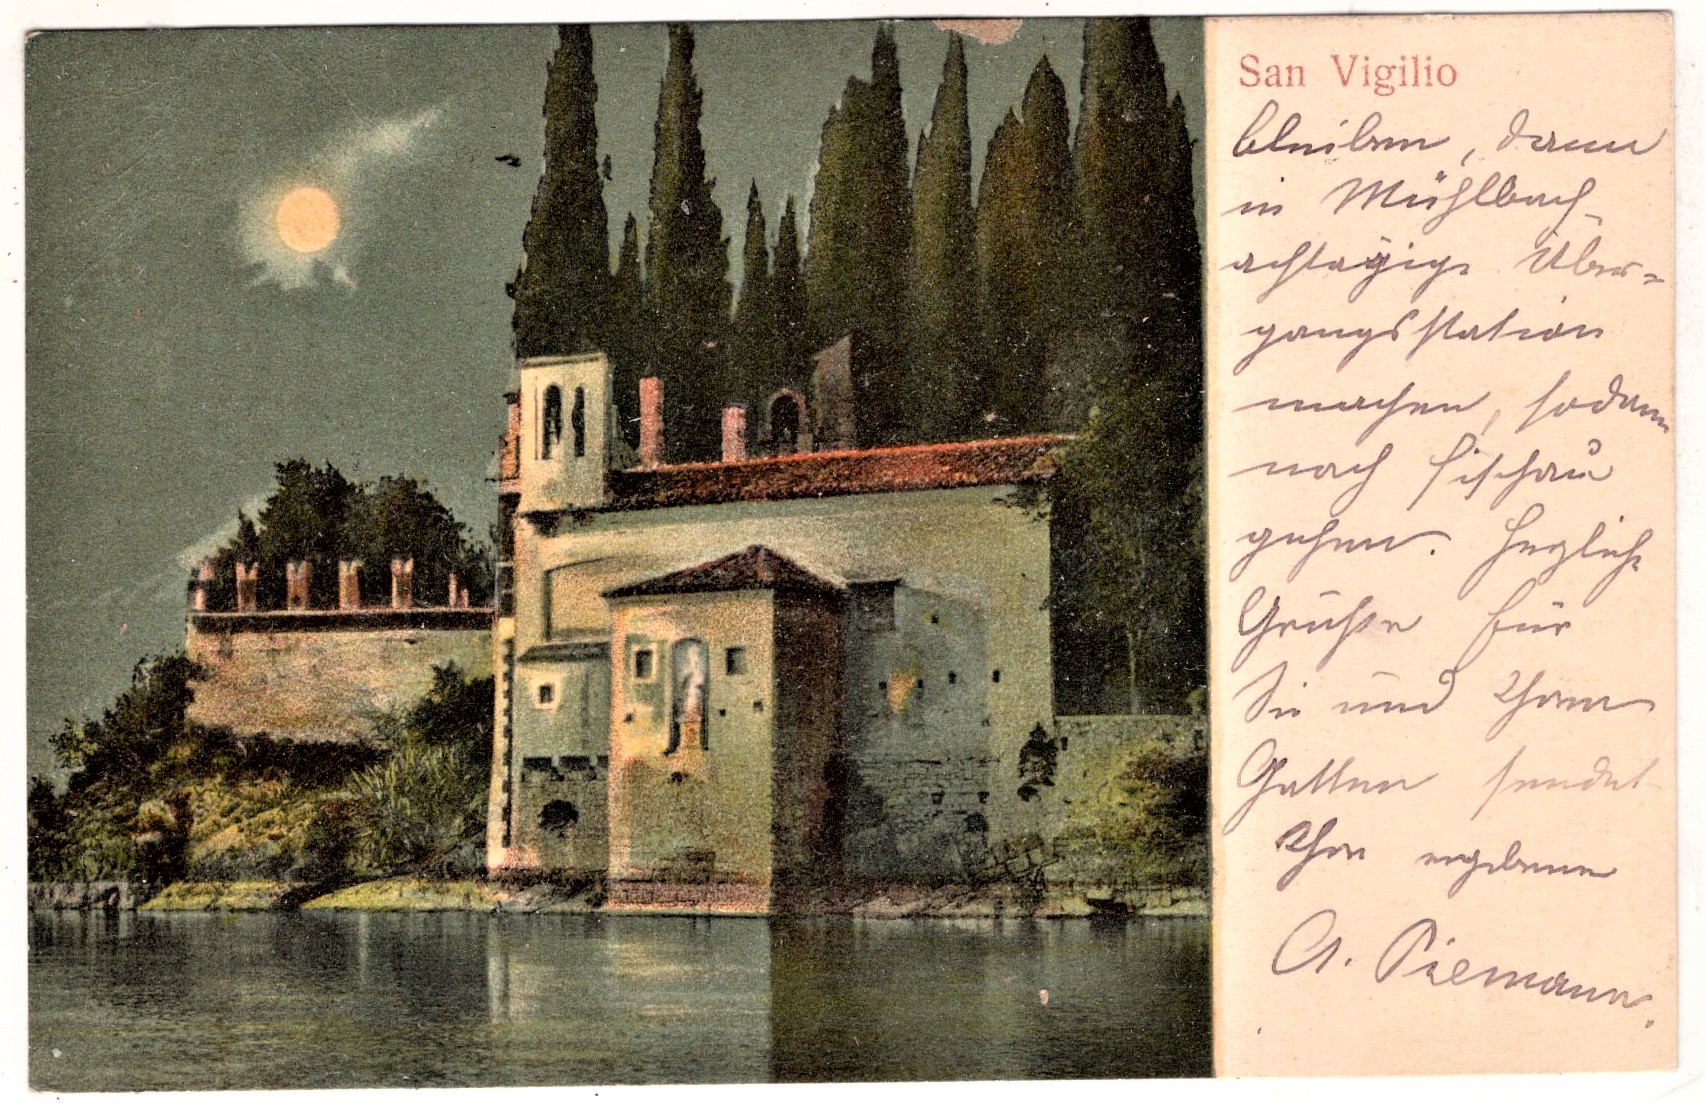 San Vigilio
bleiben, dann
in Mühlbach
achtägige Über-
gangsstation
machen, sodann
nach Fischau
gehen. Herzliche
Grüße für
Sie und Ihren
Gatten sendet
Ihre ergebene
A. Piemann.